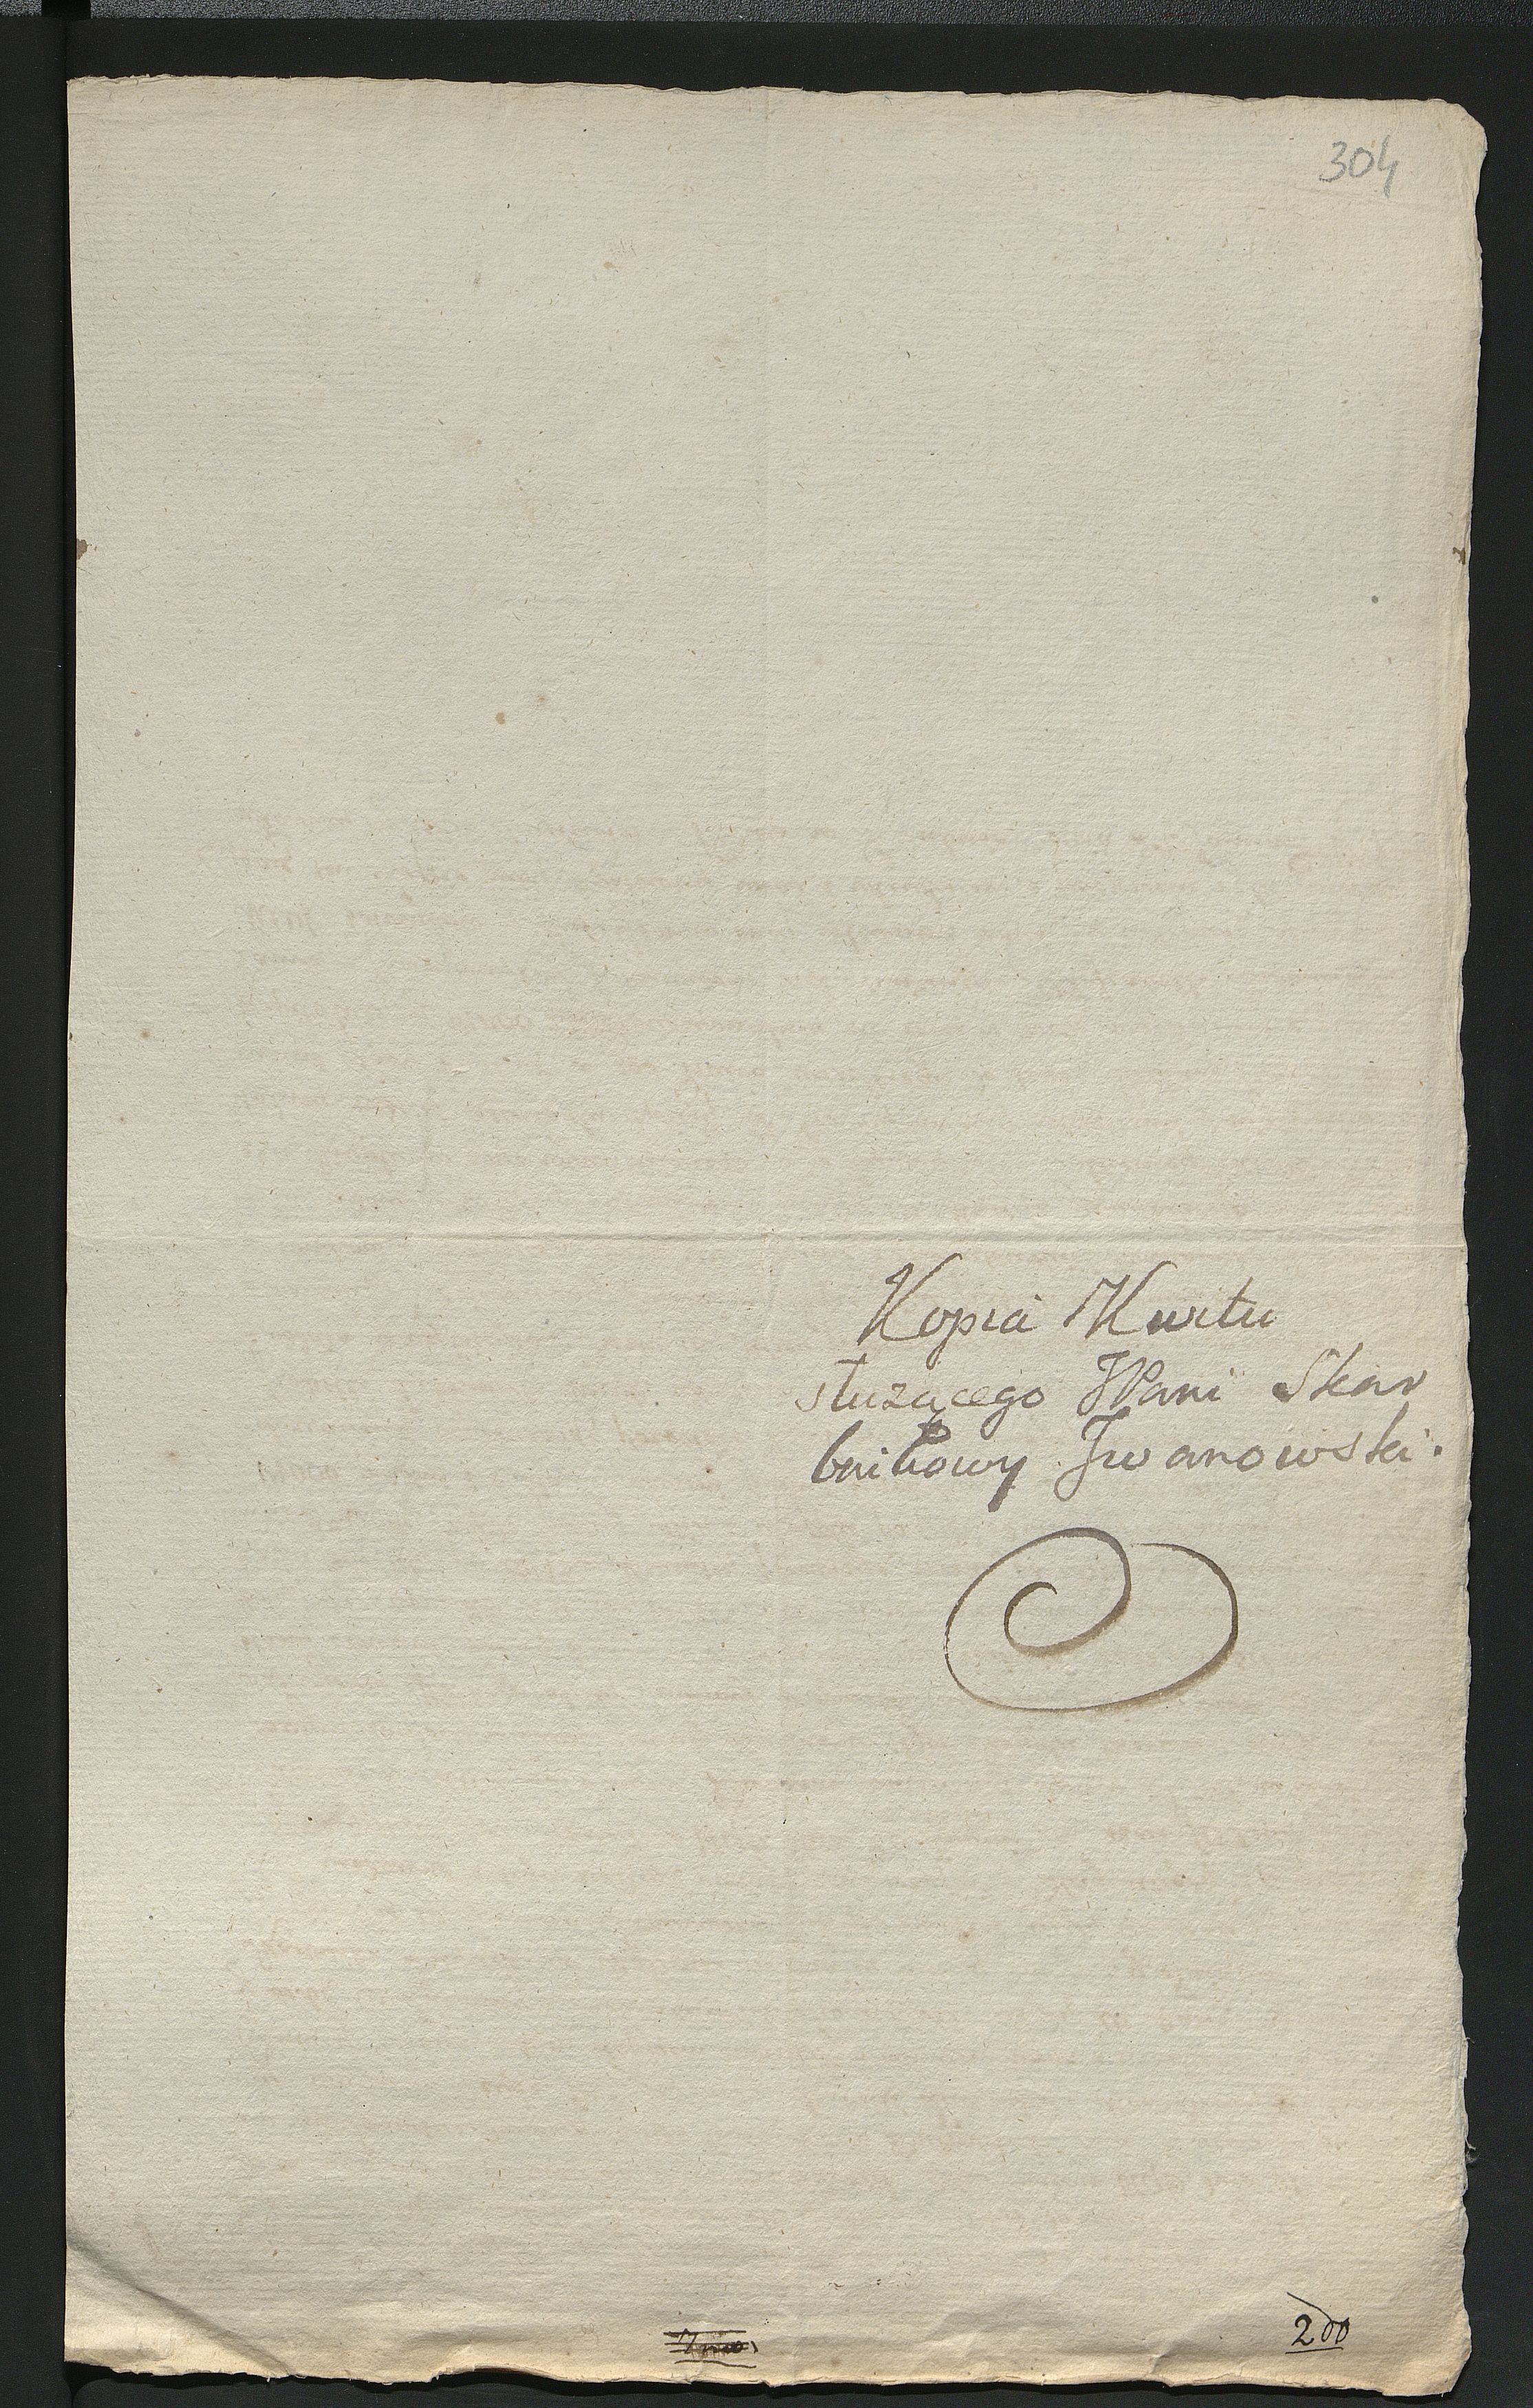 304
Kopia Kwitu
służącego JPani Skar
bnikowy Iwanowski.
200